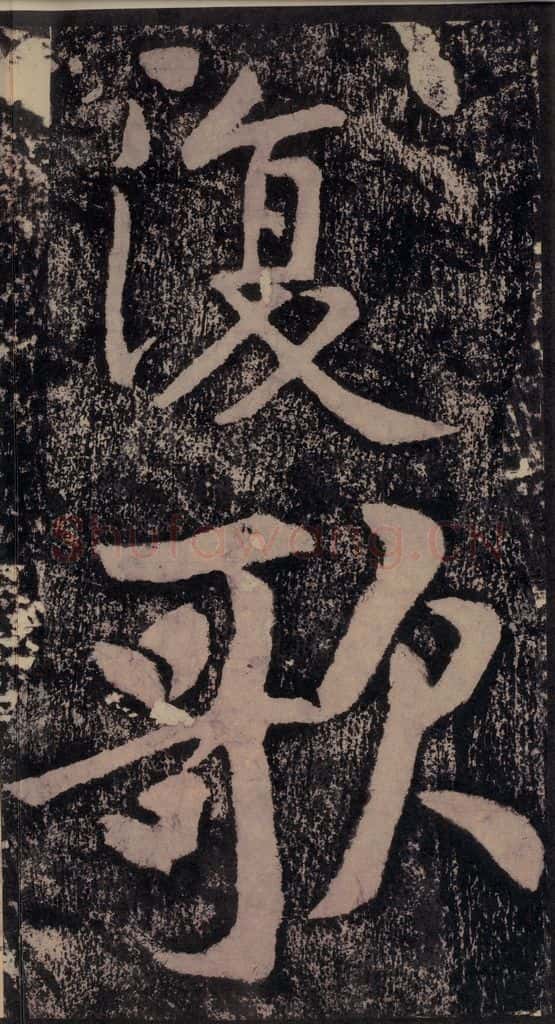 復歌
Shufawang.CN